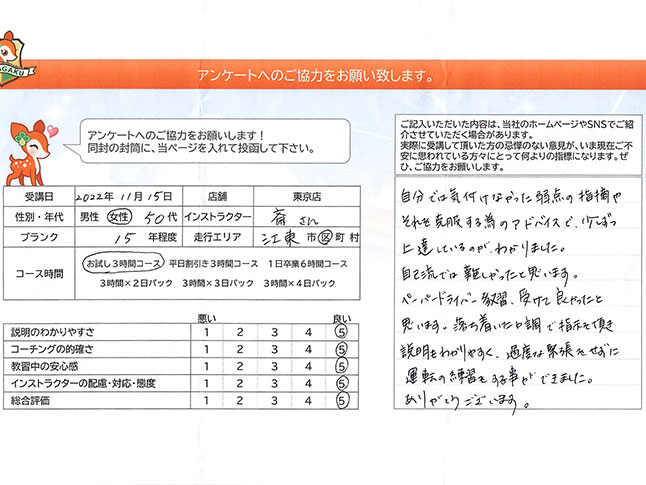 AGAKU
アンケートへのご協力をお願い致します。
アンケートへのご協力をお願いします!
同封の封筒に、当ページを入れて投函して下さい。
受講日 2022年 11月 15日 店舗 東京店
性別・年代 男性 女性 50代 インストラクター 斎さん
ブランク 15 年程度 走行エリア 江東 市 区 町 村
コース時間
お試し3時間コース 平日割引き3時間コース 1日卒業6時間コース
3時間×2日パック 3時間×3日パック 3時間×4日パック
悪い 良い
説明のわかりやすさ 1 2 3 4 5
コーチングの的確さ 1 2 3 4 5
教習中の安心感 1 2 3 4 5
インストラクターの配慮・対応・態度 1 2 3 4 5
総合評価 1 2 3 4 5
ご記入いただいた内容は、当社のホームページやSNSでご紹
介させていただく場合があります。
実際に受講して頂いた方の忌憚のない意見が、いま現在ご不
安に思われている方々にとって何よりの指標になります。ぜ
ひ、ご協力をお願いします。
自分では気付けなかった弱点の指摘や
それを克服する為のアドバイスで、少しずつ
上達しているのが、わかりました。
自己流では難しかったと思います。
ペーパードライバー教習、受けて良かったと
思います。落ち着いた口調で指示して頂き
説明もわかりやすく、過度な緊張をせずに
運転の練習をする事ができました。
ありがとうございます。